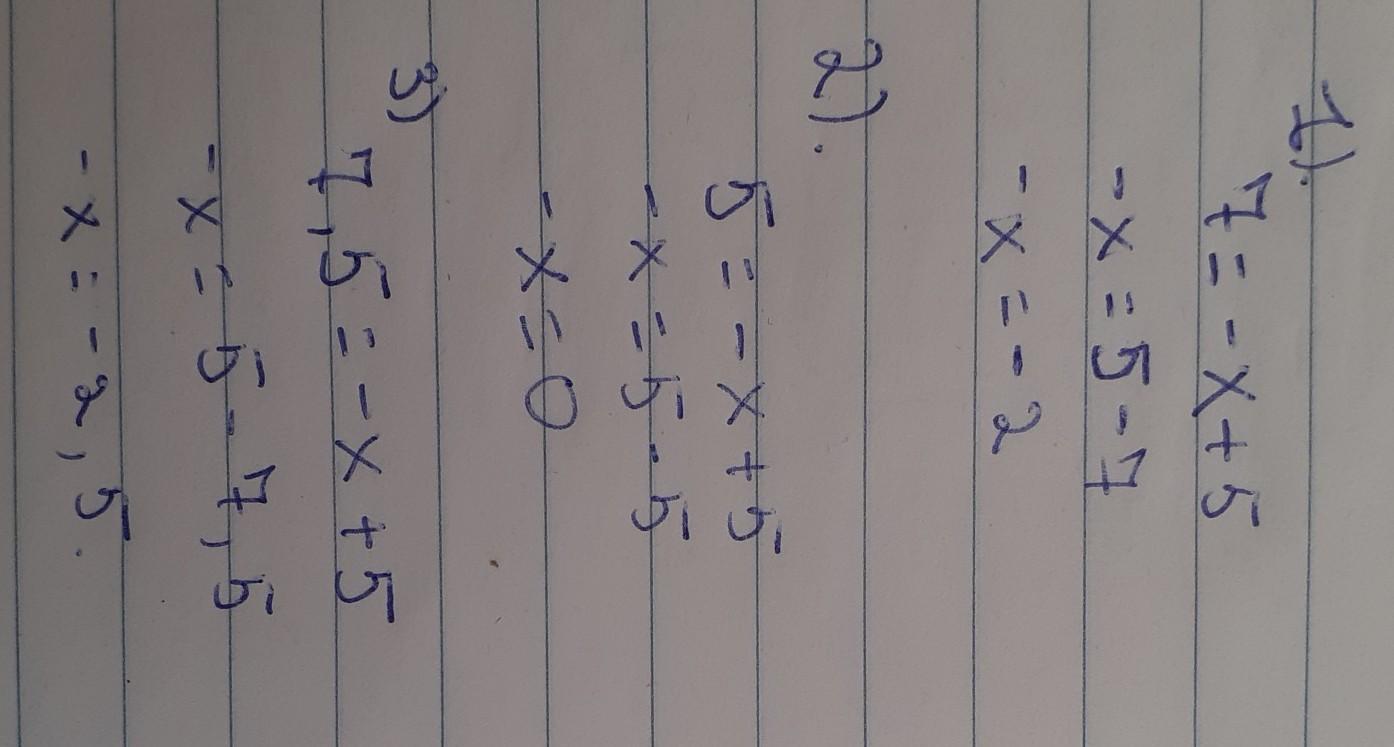 1).
7 = - x + 5
- x = 5 - 7
- x = - 2
2).
5 = - x + 5
- x = 5 - 5
- x = 0
3)
7,5 = - x + 5
- x = 5 - 7,5
- x = - 2,5.